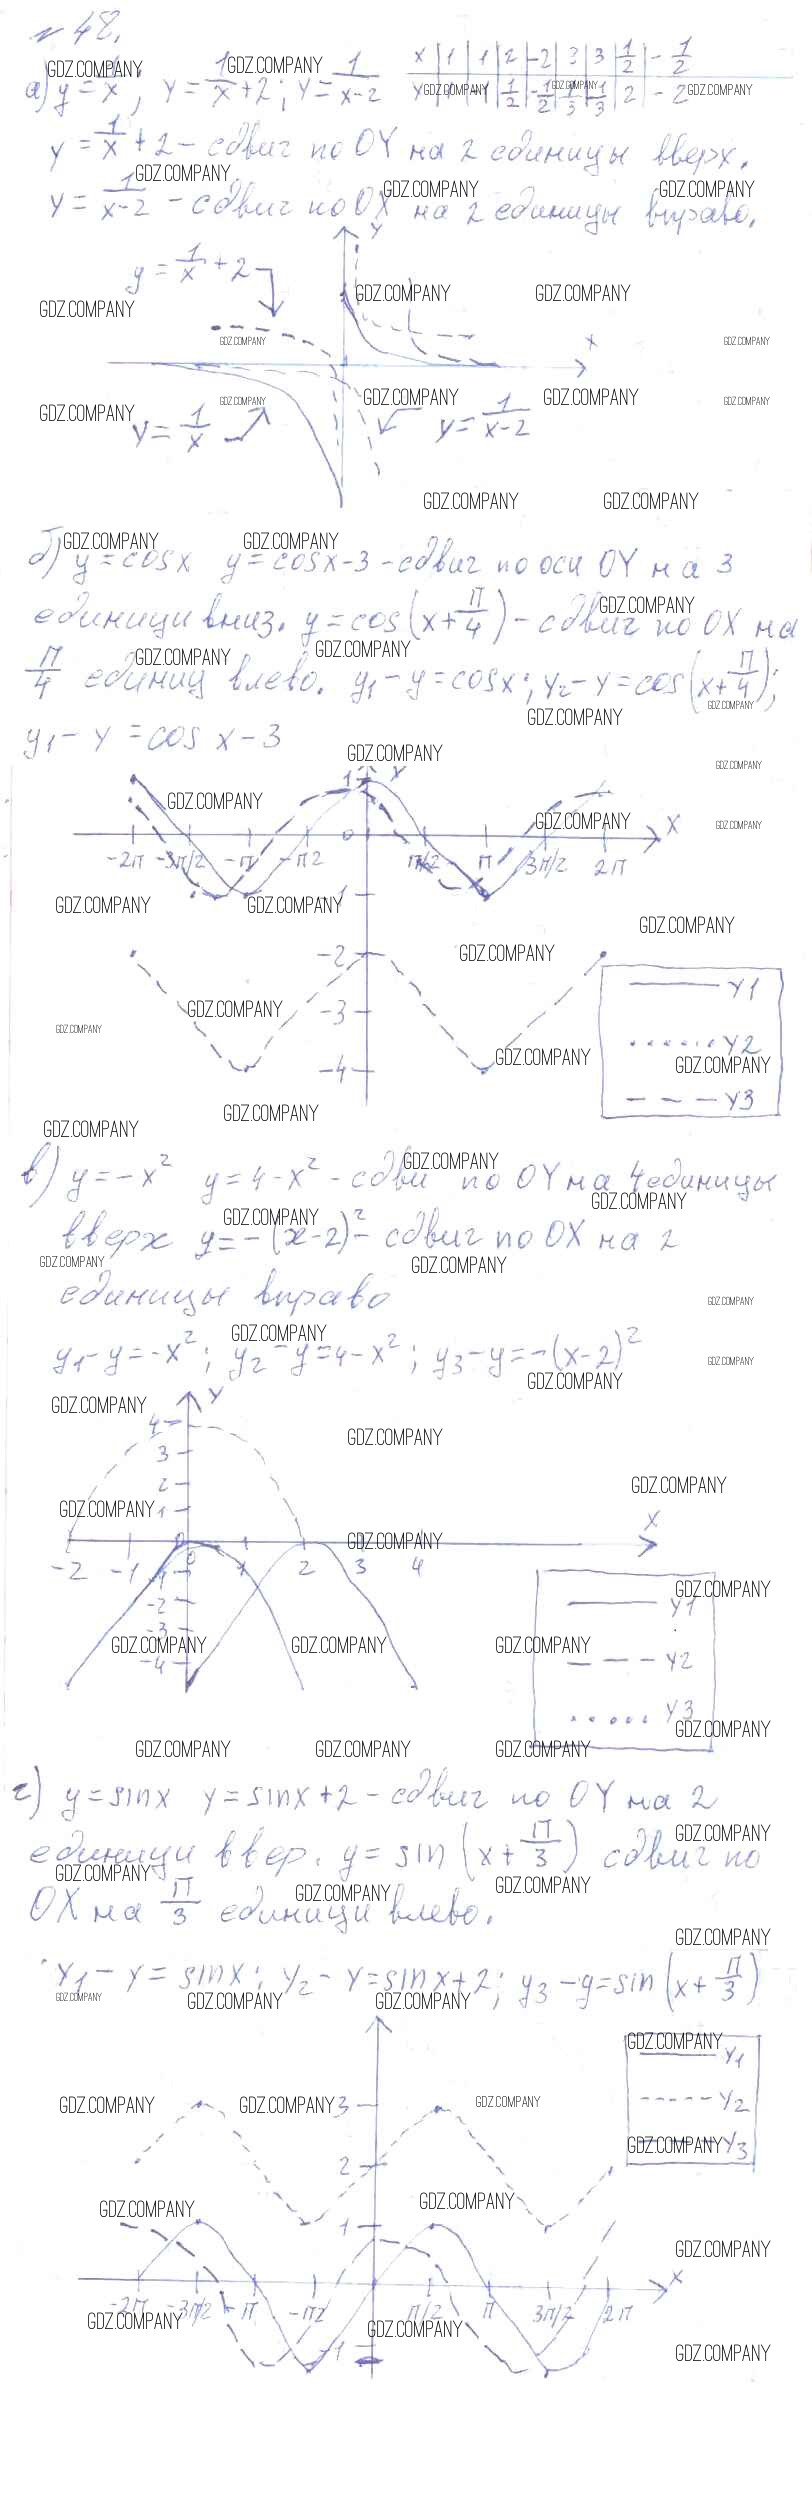 № 48.
а) y = 1/x ; y = 1/x + 2 ; y = 1/x-2
x | 1 | 1 | 2 | -2 | 3 | 3 | 1/2 | - 1/2
y | 1 | -1 | 1/2 | -1/2 | 1/3 | 1/3 | 2 | - 2
y = 1/x + 2 - сдвиг по OY на 2 единицы вверх.
y = 1/x-2 - сдвиг по OX на 2 единицы вправо.
Y
y = 1/x + 2
X
y = 1/x
y = 1/x-2
б) y = cosx y = cosx-3 - сдвиг по оси OY на 3
единици вниз. y = cos(x+π/4) - сдвиг по OX на
π/4 единиц влево. y1 - y = cosx ; y2 - y = cos(x+π/4);
y1 - y = cos x - 3
1 Y
X
0
-2π -3π/2 -π -π2 π/2 π 3π/2 2π
-1
-2
-3
-4
Y1
Y2
Y3
в) y = -x² y = 4-x² - сдви по OY на 4 единицы
вверх y = -(x-2)² - сдвиг по OX на 2
единицы вправо
y1 - y = -x² ; y2 - y = 4-x² ; y3 - y = -(x-2)²
Y
4
3
2
1
X
0
-2 -1 0 1 2 3 4
-1
-2
-3
-4
Y1
Y2
Y3
г) y = sinx y = sinx+2 - сдвиг по OY на 2
единици ввер. y = sin (x+π/3) сдвиг по
OX на π/3 единици влево.
Y1 - Y = sinx ; Y2 - Y = sinx+2 ; y3 - y = sin(x+π/3)
Y1
Y2
Y3
3
2
1
X
-2π -3π/2 -π -π2 π/2 π 3π/2 2π
-1
GDZ.COMPANY